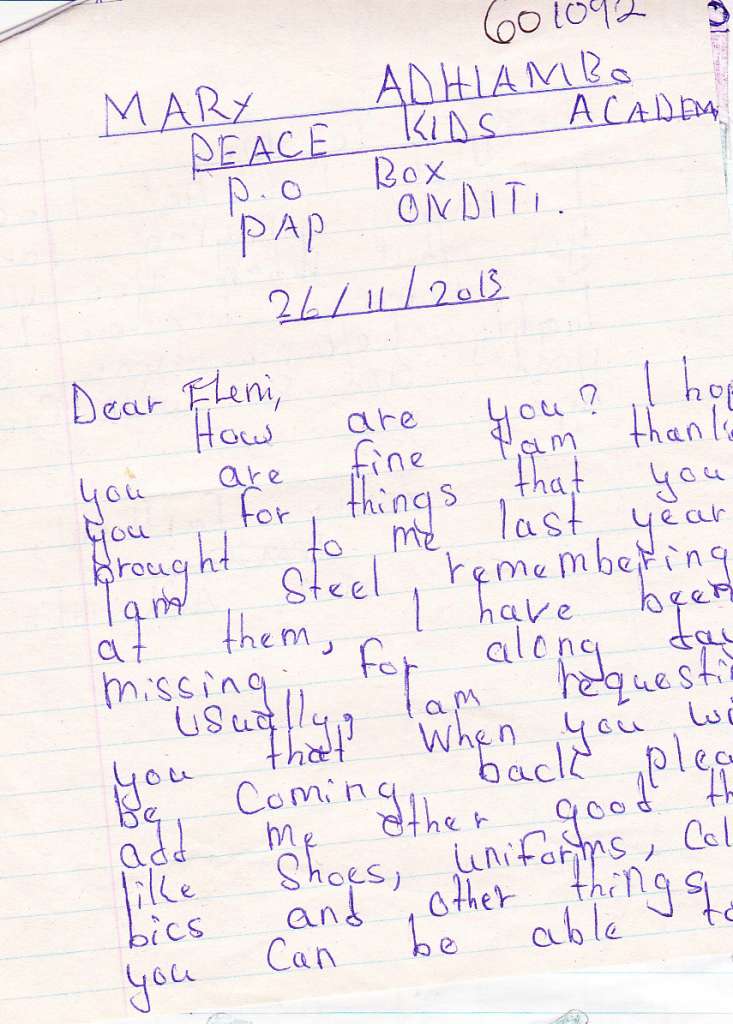 601092
MARY ADHIAMBO
PEACE KIDS ACADEM
P.O BOX
PAP ONDITI.
26/11/2013
Dear Eleni,
How are you? I hop
you are fine I am thank
you for things that you
brought to me last year
I am steel remembering
at them, I have been
missing. For along day
Usually, I am requesti
you that when you wi
be coming back plea
add me other good th
like Shoes, uniforms, Col
bics and other things
you can be able to